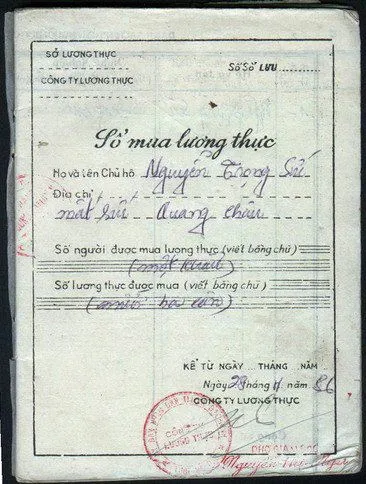 SỞ LƯƠNG THỰC
Số Sổ LƯU ..........
CÔNG TY LƯƠNG THỰC
Sổ mua lương thực
Họ và tên Chủ hộ Nguyễn Trọng
Địa chỉ
Quang
Số người được mua lương thực (viết bằng chữ)
(một khẩu)
Số lương thực được mua (viết bằng chữ)
(mười ba cân)
KỂ TỪ NGÀY ... THÁNG ... NĂM
Ngày 28 tháng 11 năm 86
CÔNG TY LƯƠNG THỰC
CÔNG TY
LƯƠNG THỰC
PHÓ GIÁM ĐỐC
Nguyễn